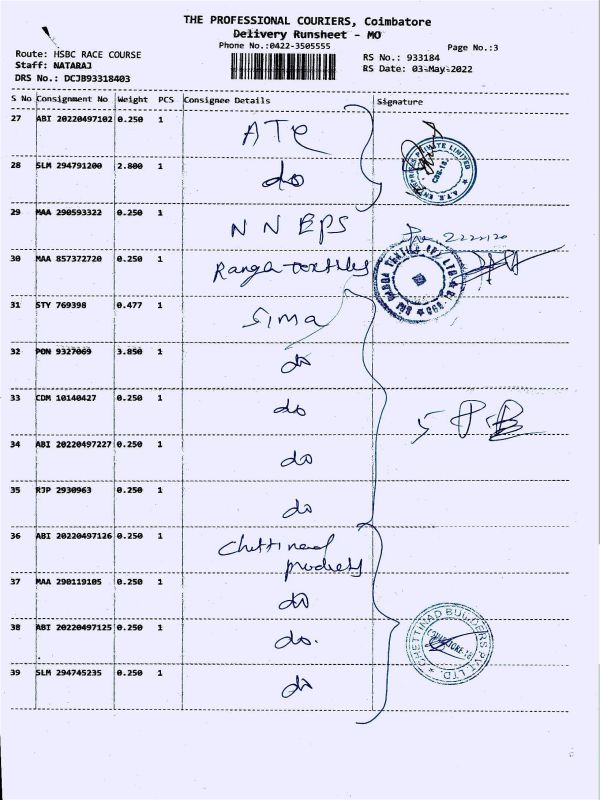 THE PROFESSIONAL COURIERS, Coimbatore
Delivery Runsheet - MO
Phone No.:0422-3505555
Page No.:3
Route: HSBC RACE COURSE
Staff: NATARAJ
DRS No.: DCJB93318403
RS No.: 933184
RS Date: 03-May-2022
S No Consignment No Weight PCS Consignee Details Signature
27 ABI 20220497102 0.250 1 ATE
28 SLM 294791200 2.800 1 do
29 MAA 290593322 0.250 1 N N EPS
30 MAA 857372720 0.250 1 Ranga textiles
31 STY 769398 0.477 1 Sima
32 PON 9327069 3.850 1 do
33 CDM 10140427 0.250 1 do
34 ABI 20220497227 0.250 1 do
35 RJP 2930963 0.250 1 do
36 ABI 20220497126 0.250 1 Chettinad
products
37 MAA 290119105 0.250 1 do
38 ABI 20220497125 0.250 1 do.
39 SLM 294745235 0.250 1 do
CHETTINAD BUILDERS PVT. LTD.